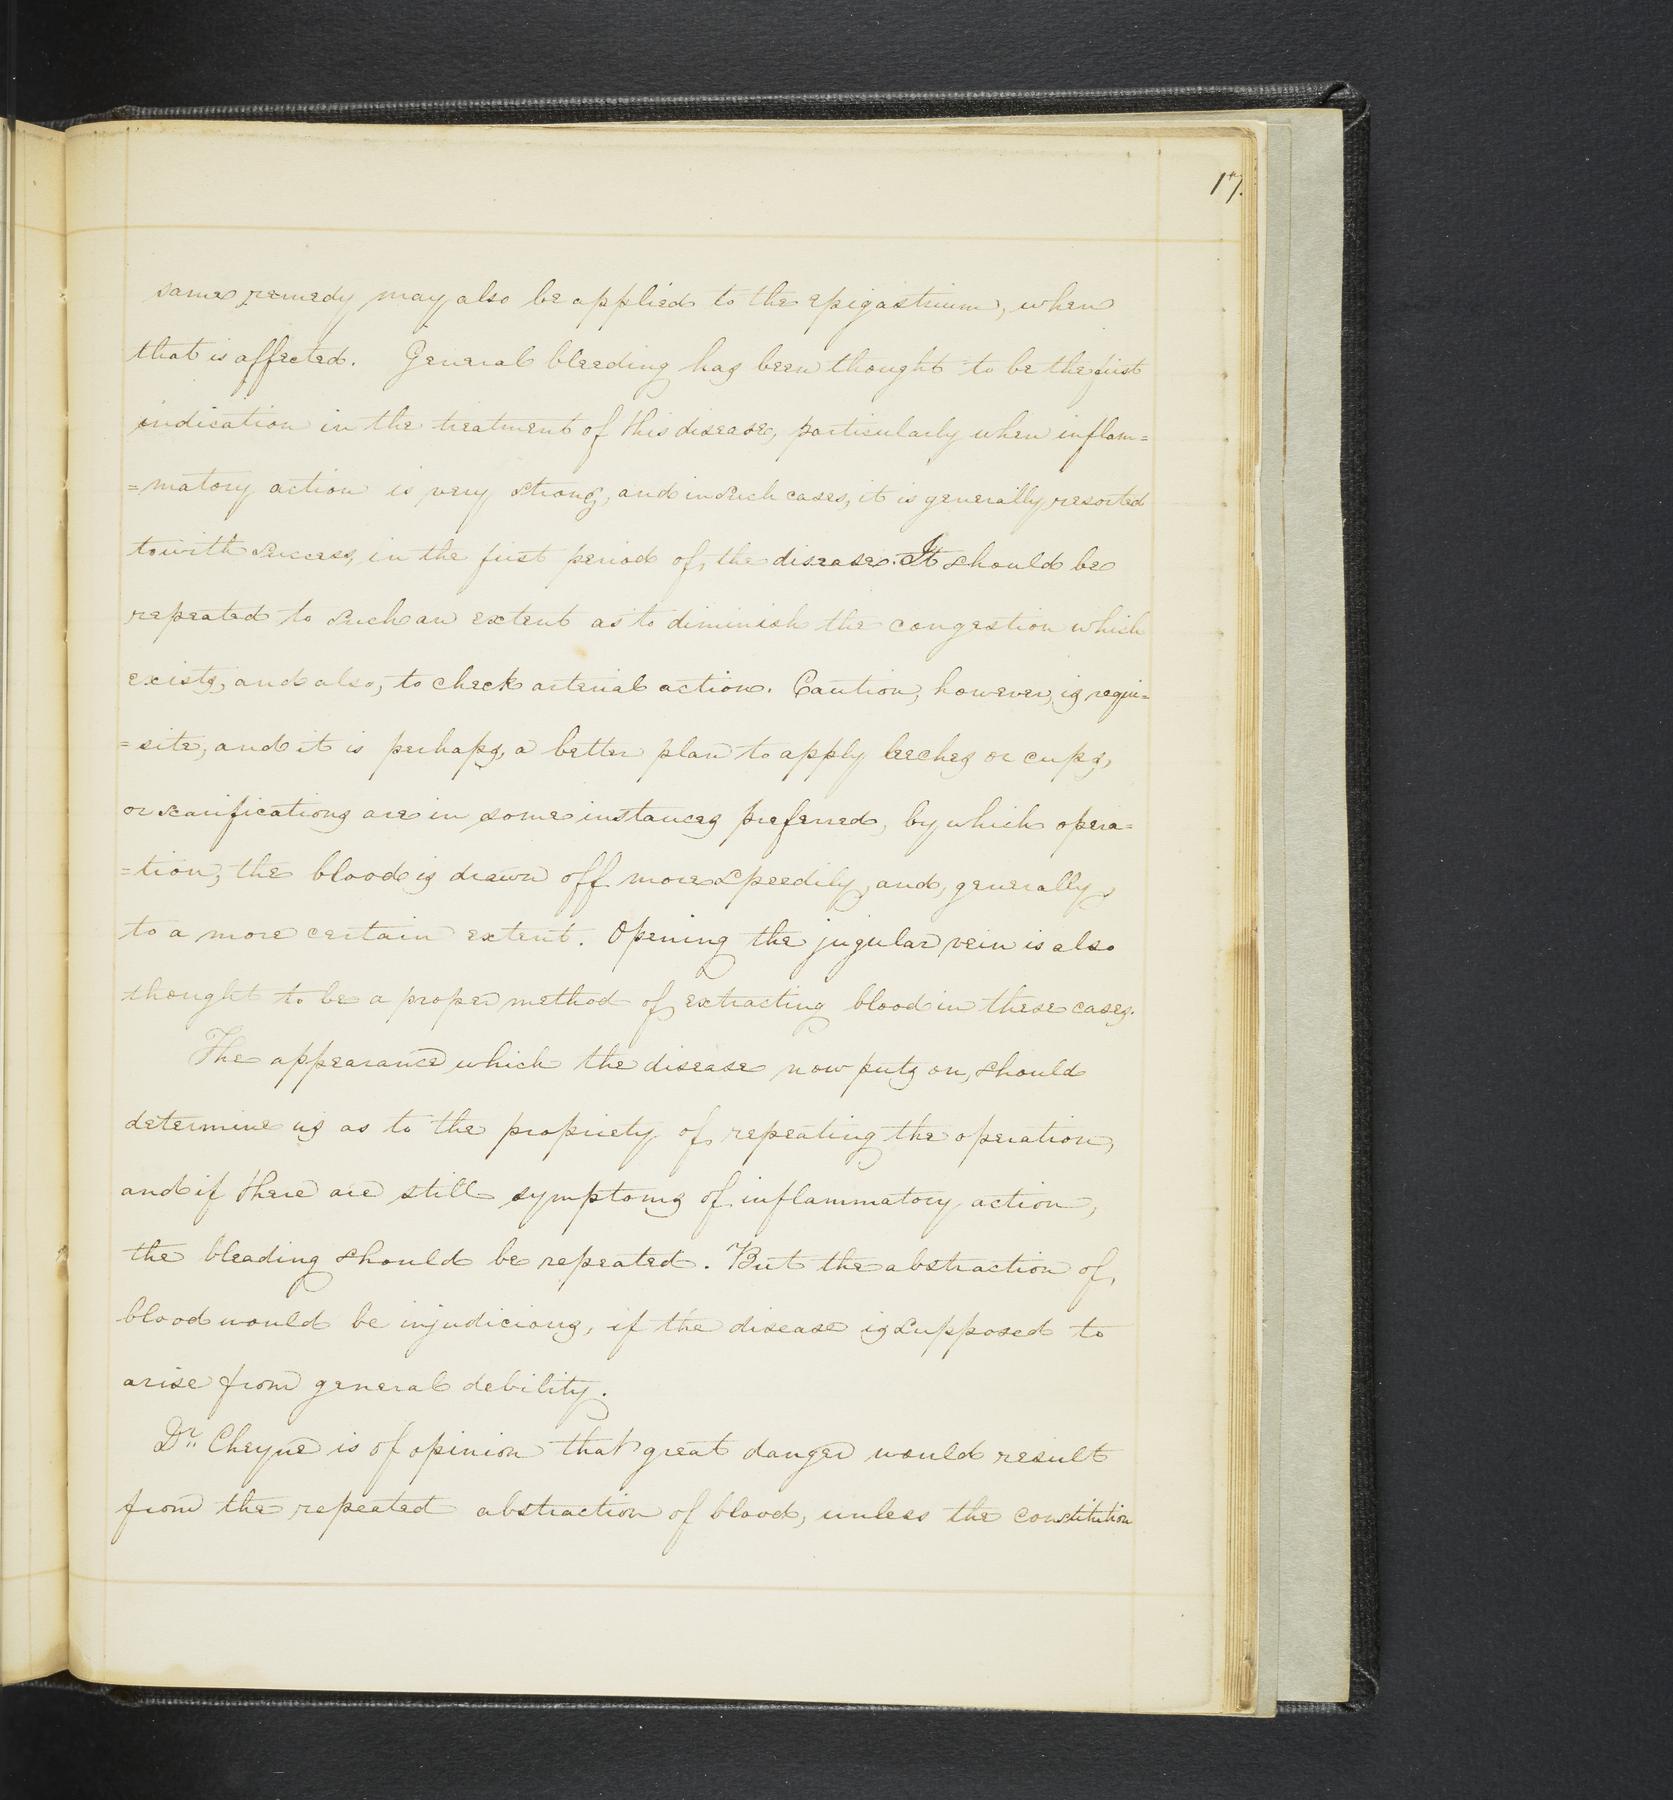 17.
same remedy may also be applied to the epigastrium, when
that is affected. General bleeding has been thought to be the first
indication in the treatment of this disease, particularly when inflam=
=matory action is very strong, and in such cases, it is generally resorted
to with success, in the first period of, the disease. It should be
repeated to such an extent as to diminish the congestion which
exists, and also, to check arterial action. Caution, however, is requi=
=site, and it is perhaps, a better plan to apply leeches or cups,
or scarifications are in some instances preferred, by which opera=
=tion, the blood is drawn off more speedily, and, generally,
to a more certain extent. Opening the jugular vein is also
thought to be a proper method of extracting blood in these cases.
The appearance which the disease now puts on, should
determine us as to the propriety of, repeating the operation,
and if there are still symptoms of inflammatory action,
the bleading should be repeated. But the abstraction of,
blood would be injudicious, if the disease is supposed to
arise from general debility.
Dr. Cheyne is of opinion that great danger would result
from the repeated abstraction of blood, unless the constitution